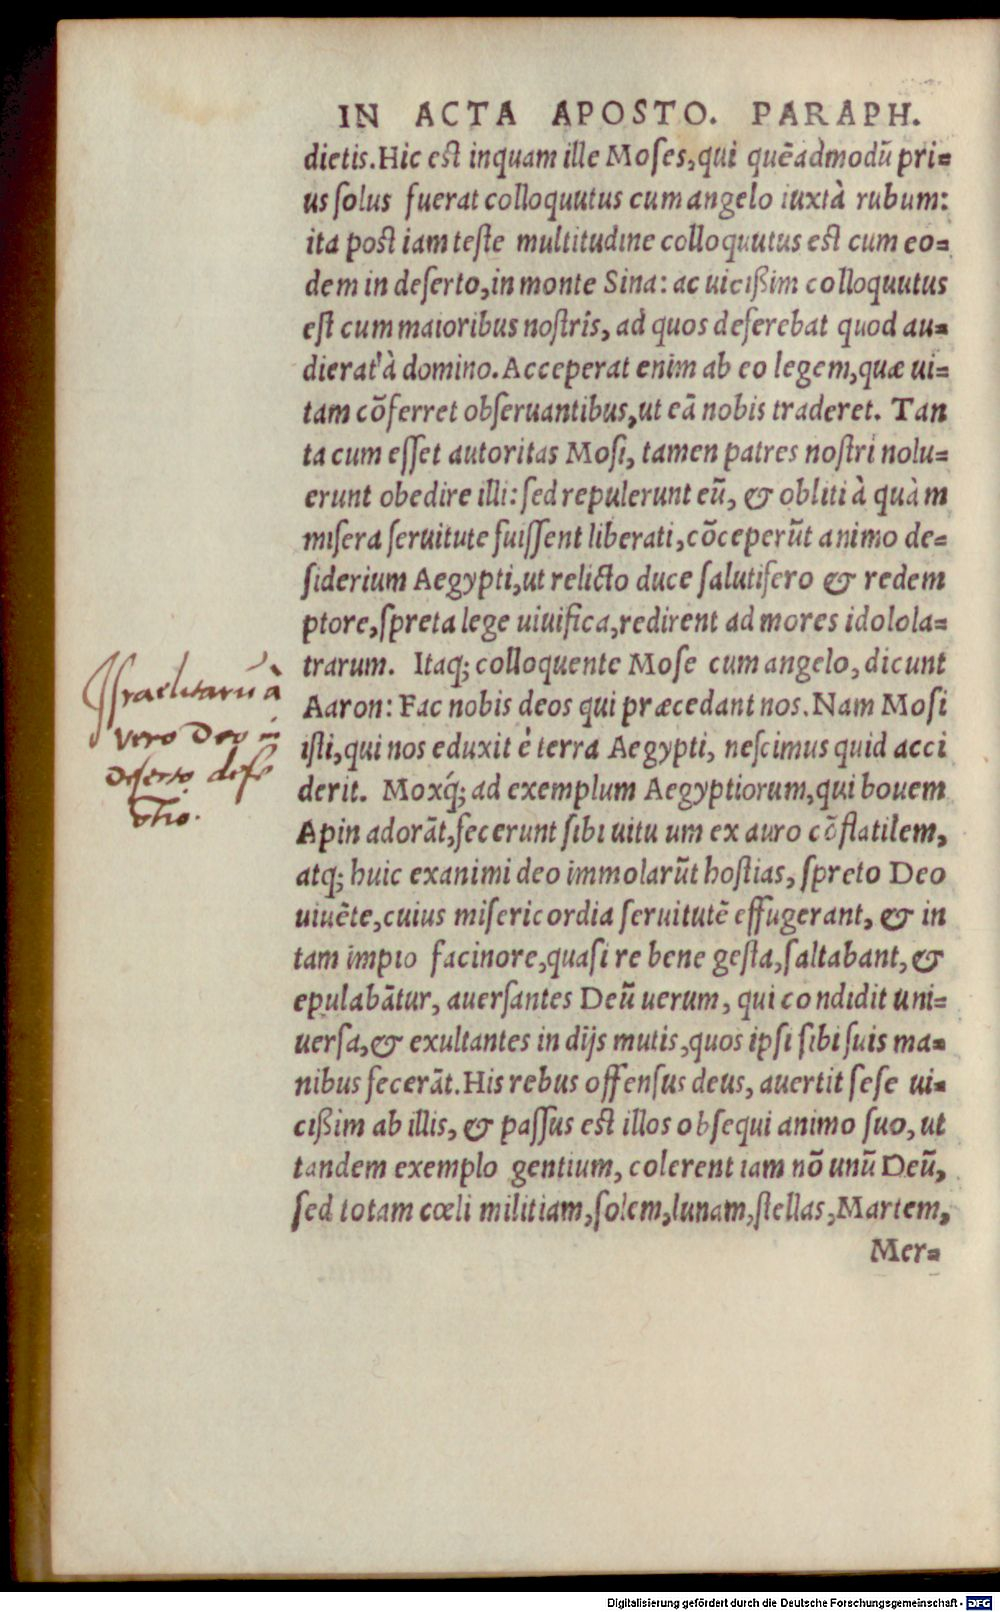 IN ACTA APOSTO. PARAPH.
dietis. Hic est inquam ille Moses, qui quēadmodū pri=
us solus fuerat colloquutus cum angelo iuxtà rubum:
ita post iam teste multitudine colloquutus est cum eo=
dem in deserto, in monte Sina: ac uicißim colloquutus
est cum maioribus nostris, ad quos deferebat quod au=
dierat à domino. Acceperat enim ab eo legem, quæ ui=
tam cōferret obseruantibus, ut eā nobis traderet. Tan
ta cum esset autoritas Mosi, tamen patres nostri nolu=
erunt obedire illi: sed repulerunt eū, & obliti à quàm
misera seruitute fuissent liberati, cōceperūt animo de=
siderium Aegypti, ut relicto duce salutifero & redem
ptore, spreta lege uiuifica, redirent ad mores idolola=
trarum. Itaq; colloquente Mose cum angelo, dicunt
Aaron: Fac nobis deos qui præcedant nos. Nam Mosi
isti, qui nos eduxit è terra Aegypti, nescimus quid acci
derit. Moxq́; ad exemplum Aegyptiorum, qui bouem
Apin adorāt, fecerunt sibi uitu um ex auro cōflatilem,
atq; huic exanimi deo immolarūt hostias, spreto Deo
uiuēte, cuius misericordia seruitutē effugerant, & in
tam impio facinore, quasi re bene gesta, saltabant, &
epulabātur, auersantes Deū uerum, qui condidit uni=
uersa, & exultantes in dijs mutis, quos ipsi sibi suis ma=
nibus fecerāt. His rebus offensus deus, auertit sese ui=
cißim ab illis, & passus est illos obsequi animo suo, ut
tandem exemplo gentium, colerent iam nō unū Deū,
sed totam cœli militiam, solem, lunam, stellas, Martem,
Mer=
Israelitarū à
vero Deo in
deserto defe
ctio.
Digitalisierung gefördert durch die Deutsche Forschungsgemeinschaft - DFG